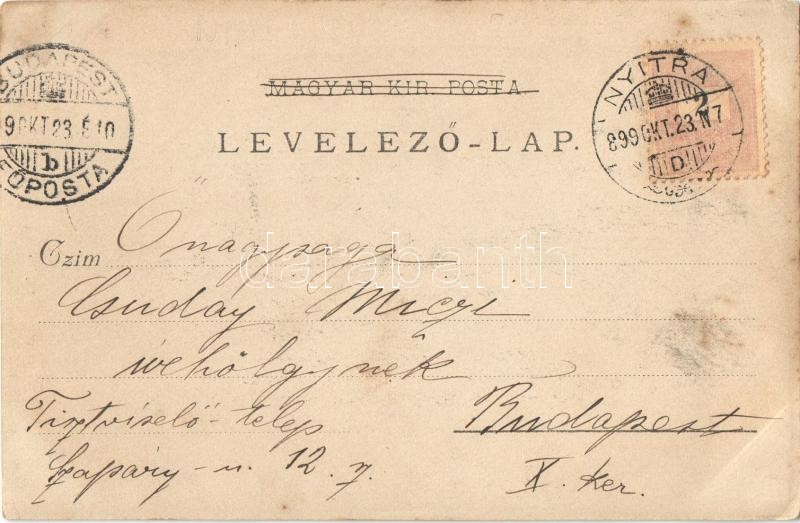 MAGYAR KIR. POSTA
LEVELEZŐ-LAP.
BUDAPEST
99 OKT. 23. É 10
b
FŐPOSTA
NYITRA
899 OKT. 23. N 7
D
2
Czim
Őnagysága
Csuday Miczi
úrhölgynek
Tisztviselő-telep
Budapest
Szapáry-u. 12.
X. Ker.
darabanth